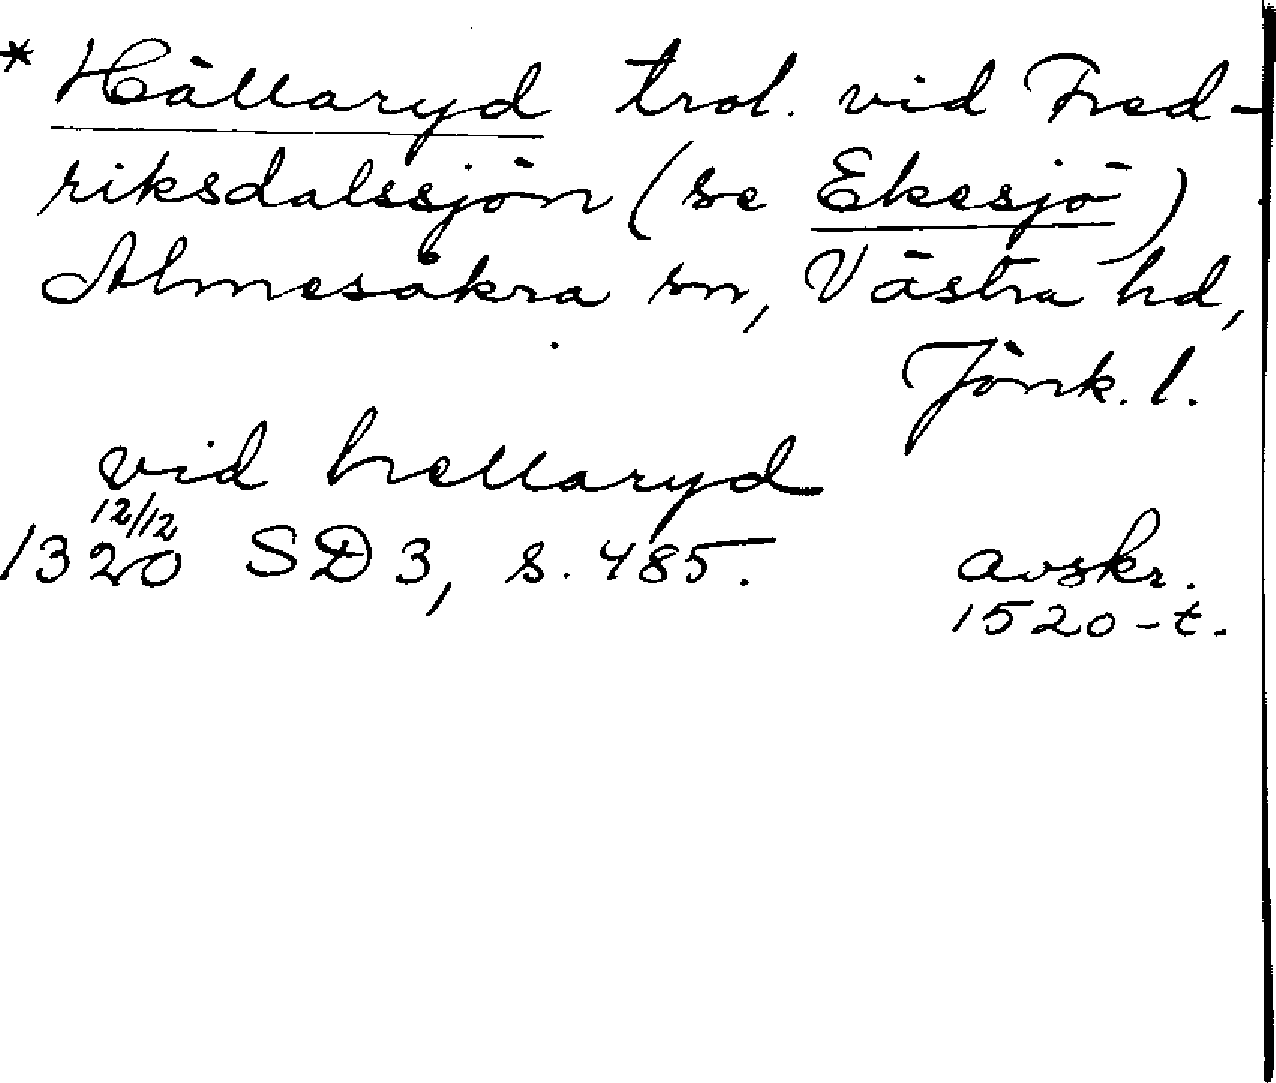 * Hällaryd trol. vid Fred-
riksdalssjön (se Ekesjö)
Almesåkra sn, Västra hd,
Jönk. l.
vid hellaryd
12/12
1320 SD 3, s. 485. avskr.
1520-t.